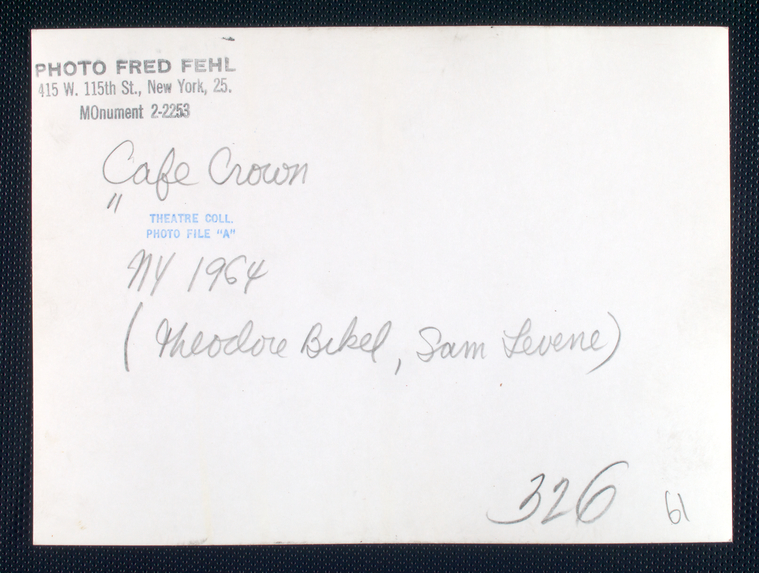 PHOTO FRED FEHL
415 W. 115th St., New York, 25.
MOnument 2-2253
Cafe Crown
"
THEATRE COLL.
PHOTO FILE "A"
NY 1964
(Theodore Bikel, Sam Levene)
326
61